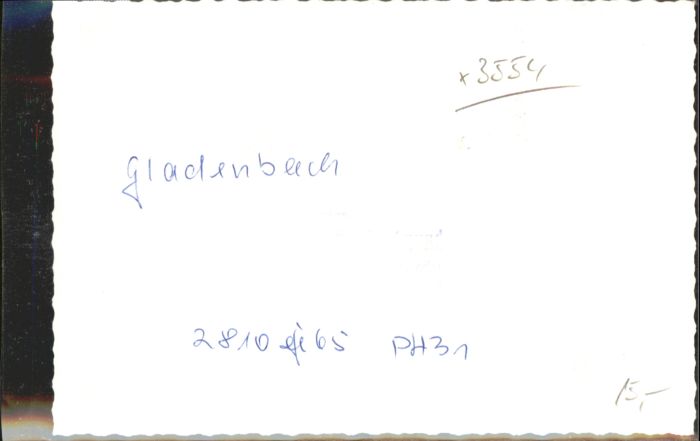 x3554
Gladenbach
2810 gi65 PH31
15,-